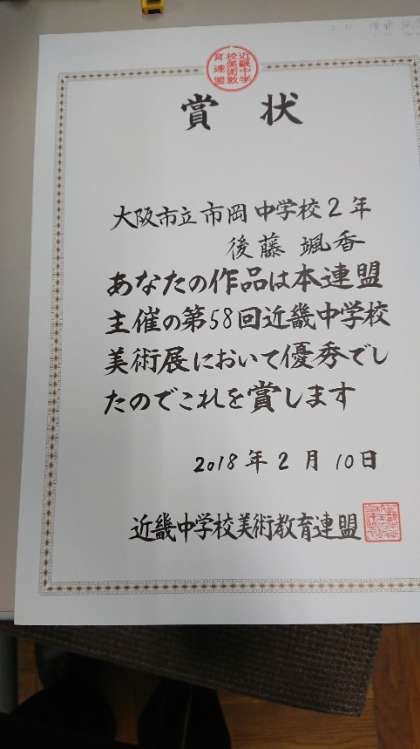 賞状
大阪市立市岡中学校2年
後藤 颯香
あなたの作品は本連盟
主催の第58回近畿中学校
美術展において優秀でし
たのでこれを賞します
2018年2月10日
近畿中学校美術教育連盟